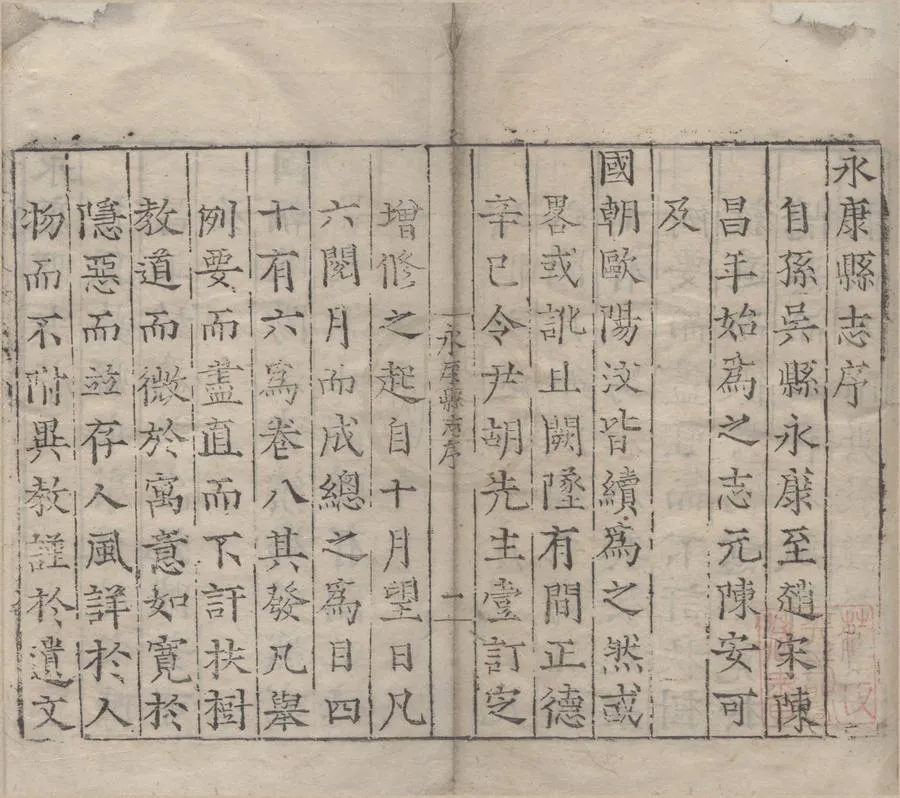 永康縣志序
自孫吳縣永康至趙宋陳
昌年始為之志元陳安可
及
國朝歐陽汶皆續爲之然或
畧或訛且闕墜有間正德
辛巳令尹胡先生壹訂定
永康縣志序
一
增修之起自十月望日凡
六閱月而成總之爲目四
十有六爲卷八其發凡舉
例要而盡直而不訐扶樹
教道而微於寓意如寬於
隱惡而竝存人風詳於人
物而不附異教謹於遺文